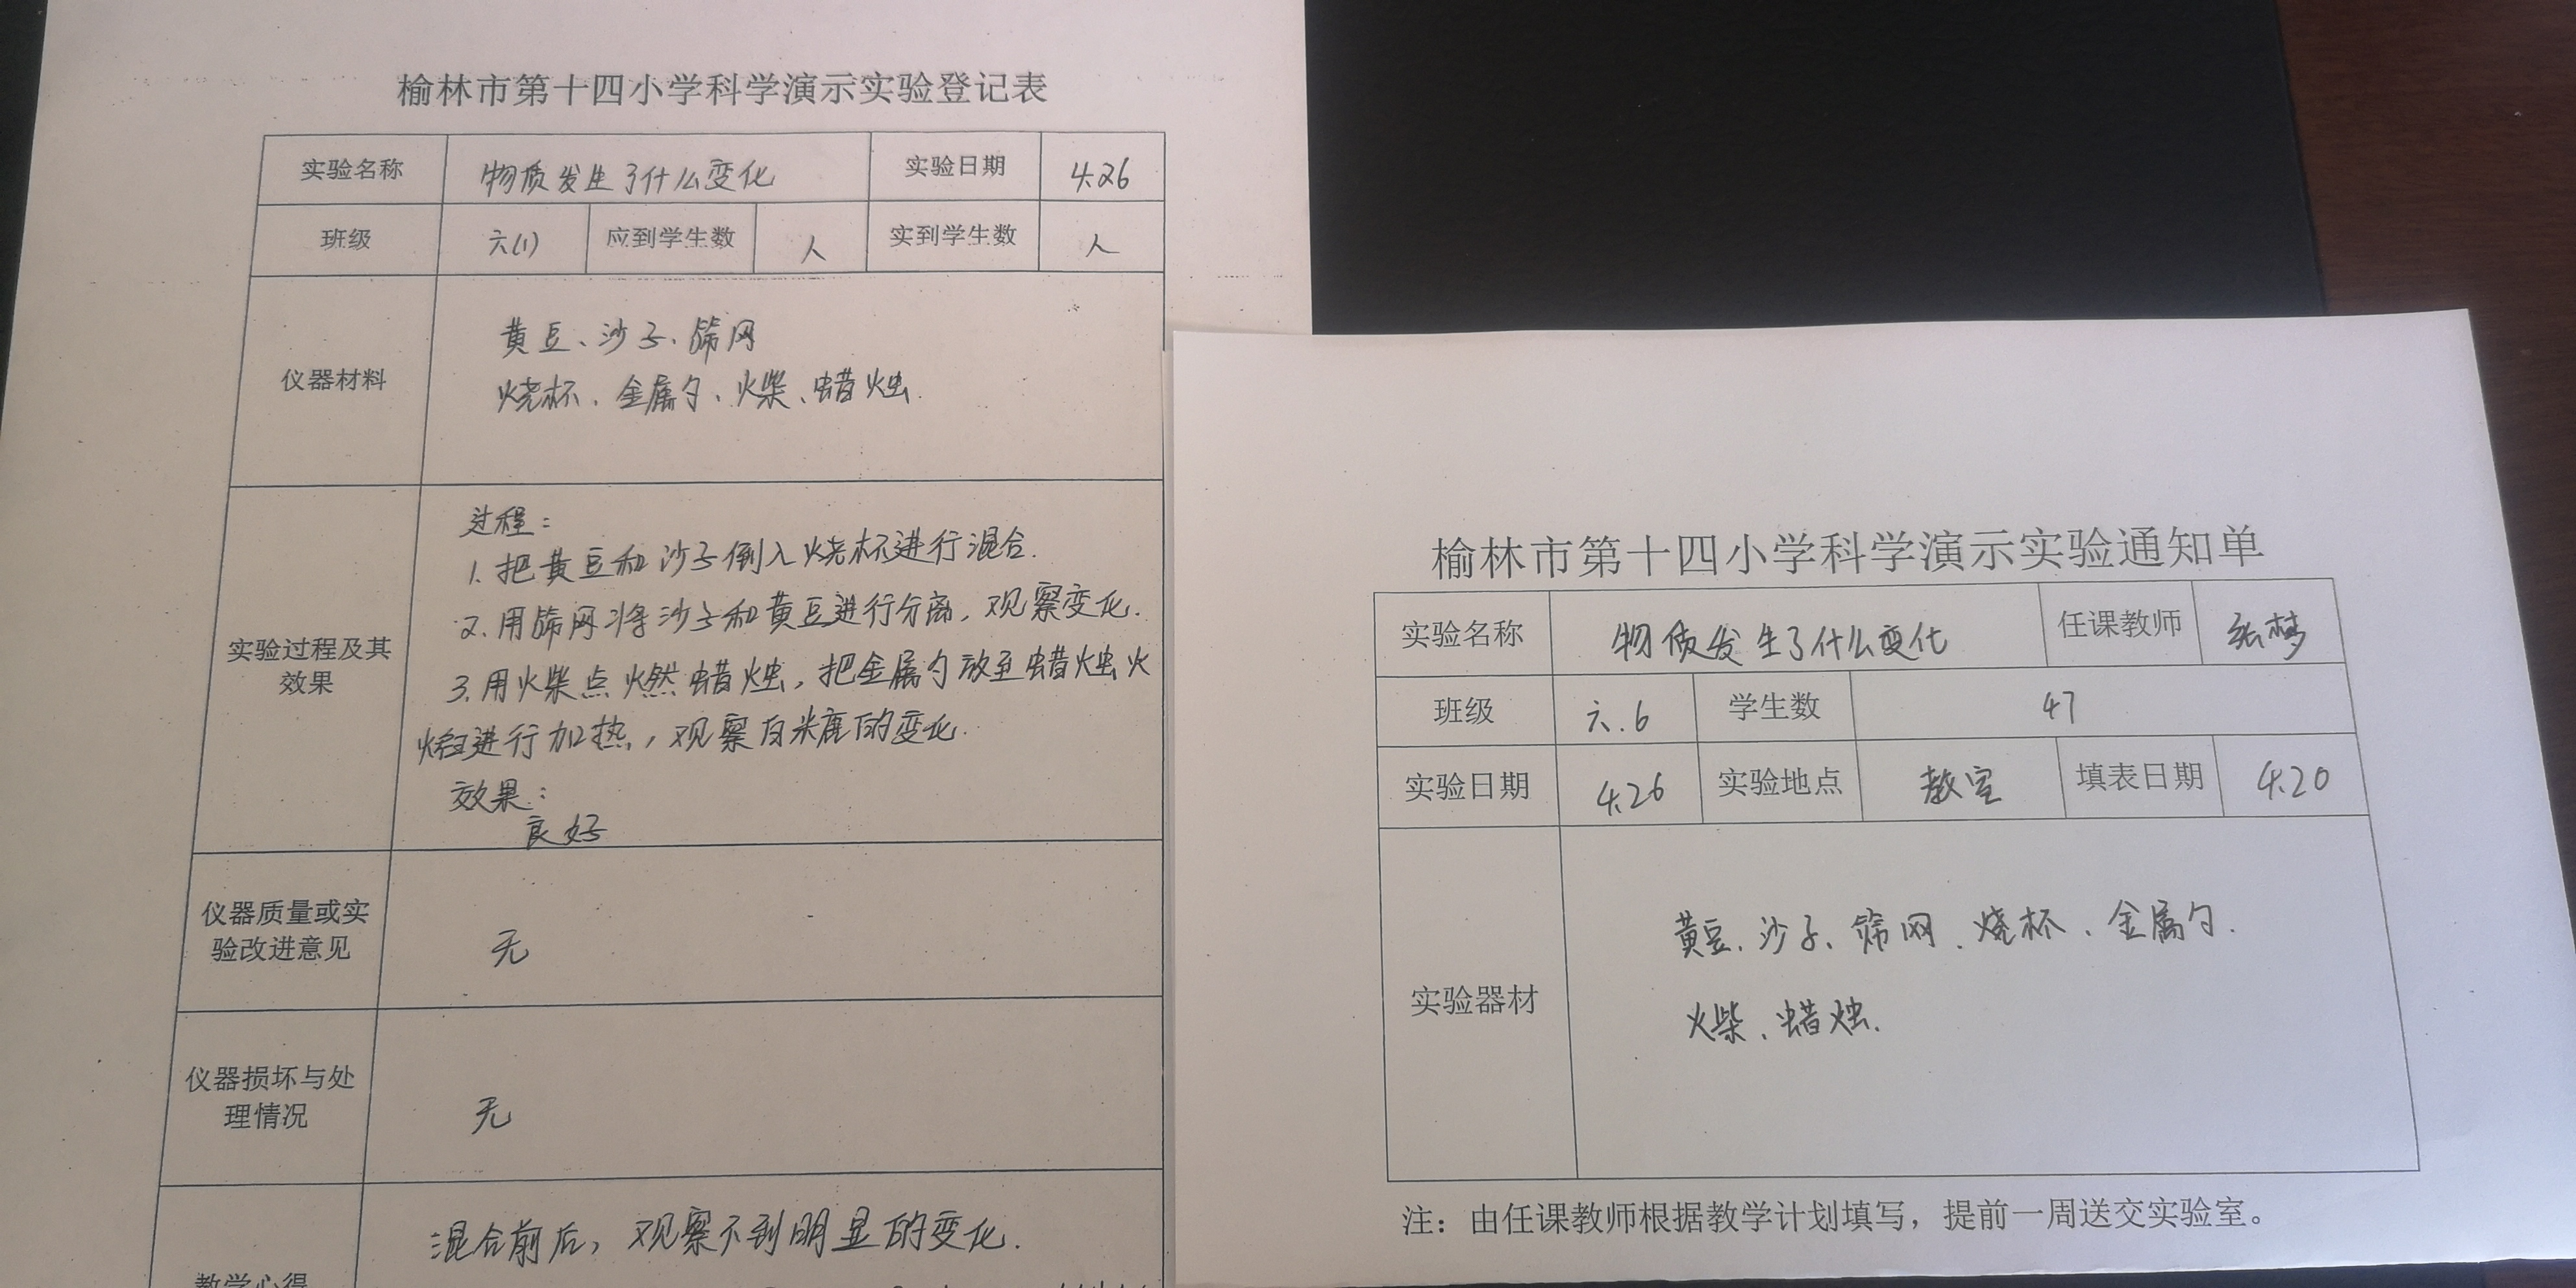 榆林市第十四小学科学演示实验登记表
实验名称 物质发生了什么变化 实验日期 4.26
班级 六(1) 应到学生数 人 实到学生数 人
仪器材料
黄豆、沙子、筛网
烧杯、金属勺、火柴、蜡烛.
实验过程及其
效果
过程：
1.把黄豆和沙子倒入烧杯进行混合.
2.用筛网将沙子和黄豆进行分离，观察变化.
3.用火柴点燃蜡烛，把金属勺放至蜡烛火
焰进行加热，观察白米糖的变化.
效果：
良好
仪器质量或实
验改进意见
无
仪器损坏与处
理情况
无
教学心得
混合前后，观察不到明显的变化.
榆林市第十四小学科学演示实验通知单
实验名称 物质发生了什么变化 任课教师 张梦
班级 六.6 学生数 47
实验日期 4.26 实验地点 教室 填表日期 4.20
实验器材
黄豆、沙子、筛网、烧杯、金属勺.
火柴、蜡烛.
注：由任课教师根据教学计划填写，提前一周送交实验室。